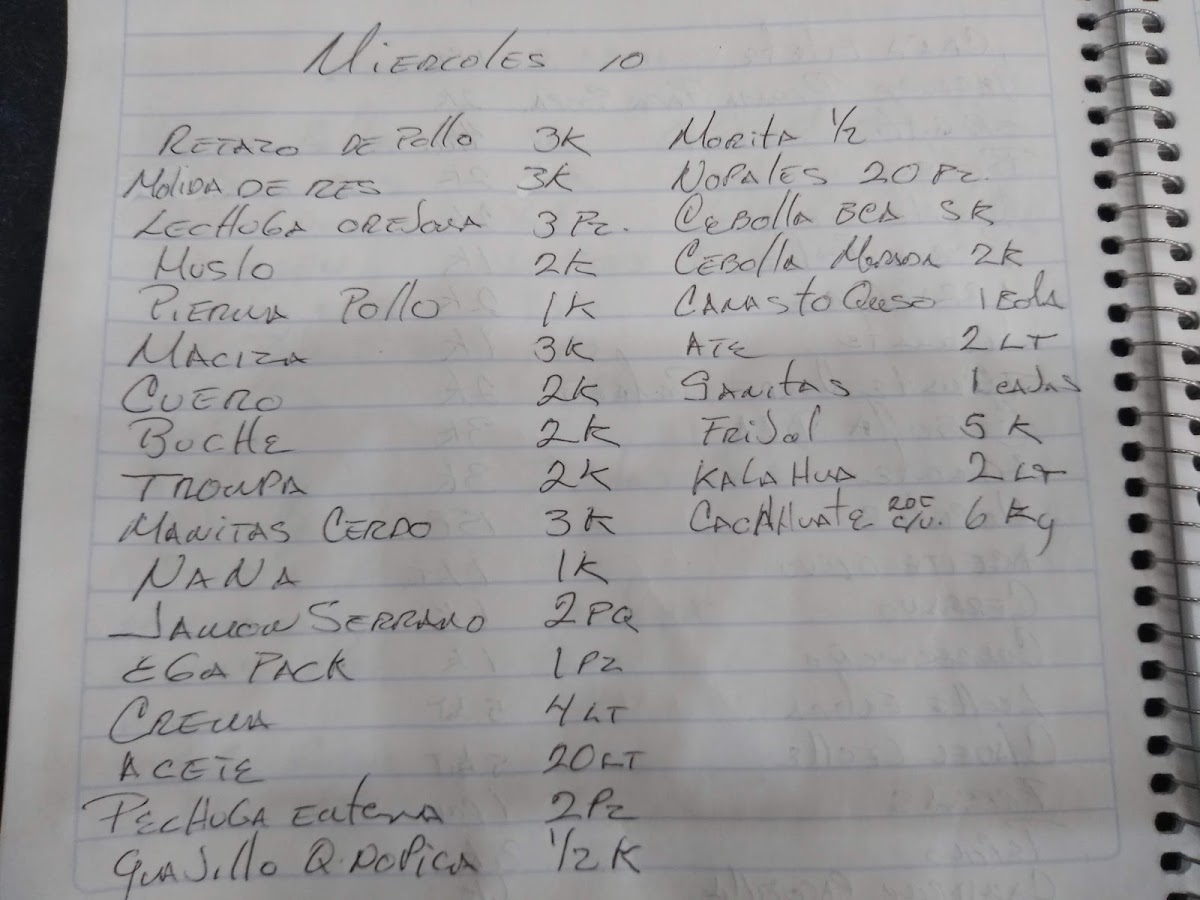 Miercoles 10
Retazo de Pollo 3K
Molida de res 3K
Lechuga orejona 3 Pz.
Muslo 2K
Pierna Pollo 1K
Maciza 3K
Cuero 2K
Buche 2K
Trompa 2K
Manitas Cerdo 3K
Nana 1K
Jamon Serrano 2 PQ
Ega Pack 1 Pz
Crema 4 LT
Aceite 20 LT
Pechuga entera 2 Pz
Guajillo 1/2 K
Morita 1/2
Nopales 20 Pz.
Cebolla BCA 5K
Cebolla Morada 2K
Canasto Queso 1 Bola
Ate 2 LT
Sanitas 1 cajas
Frijol 5 K
Kalahua 2 LT
Cacahuate 6 Kg